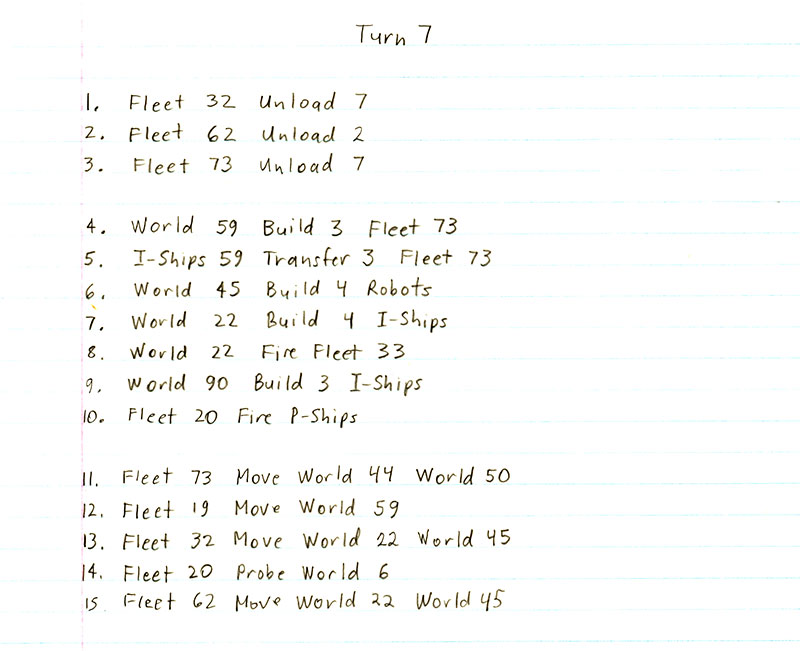 Turn 7
1. Fleet 32 Unload 7
2. Fleet 62 Unload 2
3. Fleet 73 Unload 7
4. World 59 Build 3 Fleet 73
5. I-Ships 59 Transfer 3 Fleet 73
6. World 45 Build 4 Robots
7. World 22 Build 4 I-Ships
8. World 22 Fire Fleet 33
9. World 90 Build 3 I-Ships
10. Fleet 20 Fire P-Ships
11. Fleet 73 Move World 44 World 50
12. Fleet 19 Move World 59
13. Fleet 32 Move World 22 World 45
14. Fleet 20 Probe World 6
15 Fleet 62 Move World 22 World 45